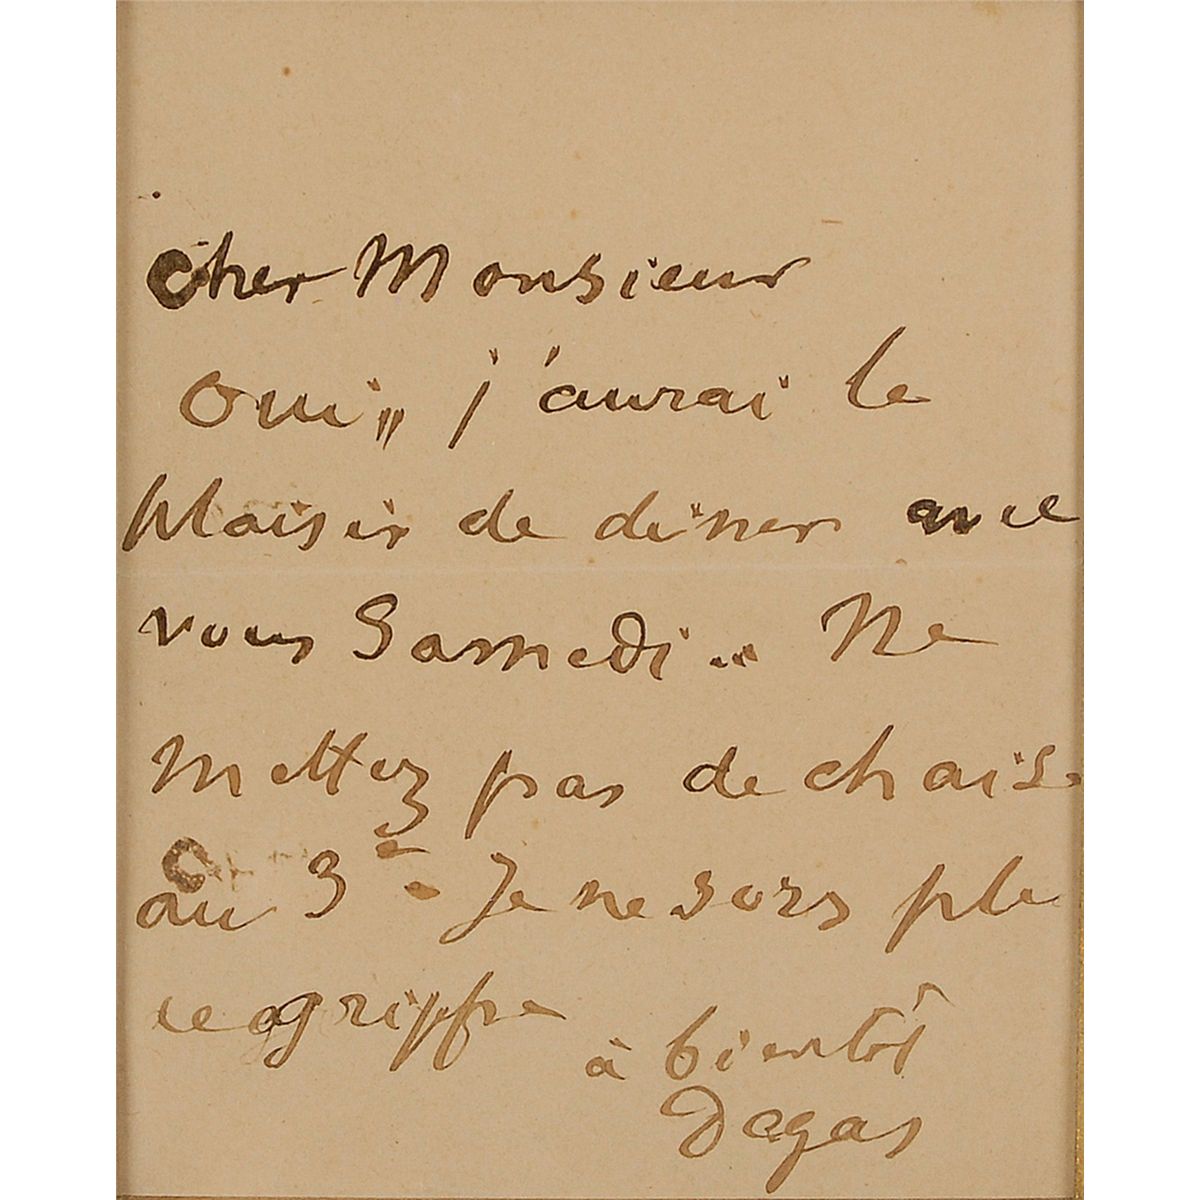 Cher Monsieur
Oui, j'aurai le
plaisir de dîner avec
vous Samedi. Ne
mettez pas de chaise
au 3e. Je ne sors
grippe
à bientôt
Degas